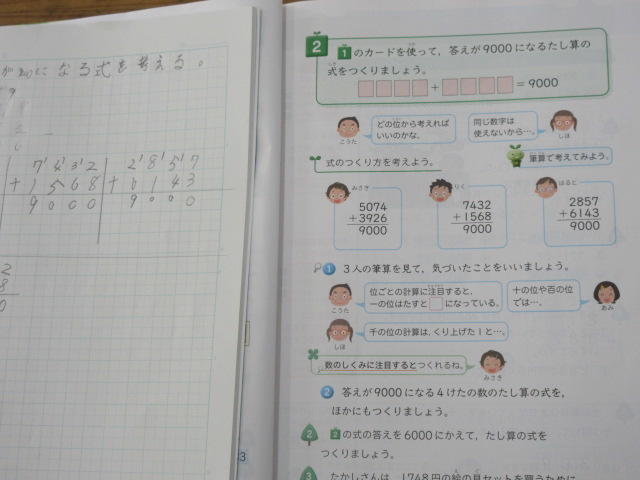 になる式を考える。
7432
+1568
9000
2857
+6143
9000
2
8
0
2 1のカードを使って，答えが9000になるたし算の
式をつくりましょう。
+ = 9000
どの位から考えれば
いいのかな。
こうた
同じ数字は
使えないから…。
しほ
式のつくり方を考えよう。
筆算で考えてみよう。
みさき
5074
+3926
9000
りく
7432
+1568
9000
はると
2857
+6143
9000
1 3人の筆算を見て，気づいたことをいいましょう。
位ごとの計算に注目すると，
一の位はたすと□になっている。
こうた
十の位や百の位
では…。
あみ
千の位の計算は，くり上げた1と…。
しほ
数のしくみに注目するとつくれるね。
みさき
2 答えが9000になる4けたの数のたし算の式を，
ほかにもつくりましょう。
2 2の式の答えを6000にかえて，たし算の式を
つくりましょう。
3 たかしさんは，1748円の絵の具セットを買うために